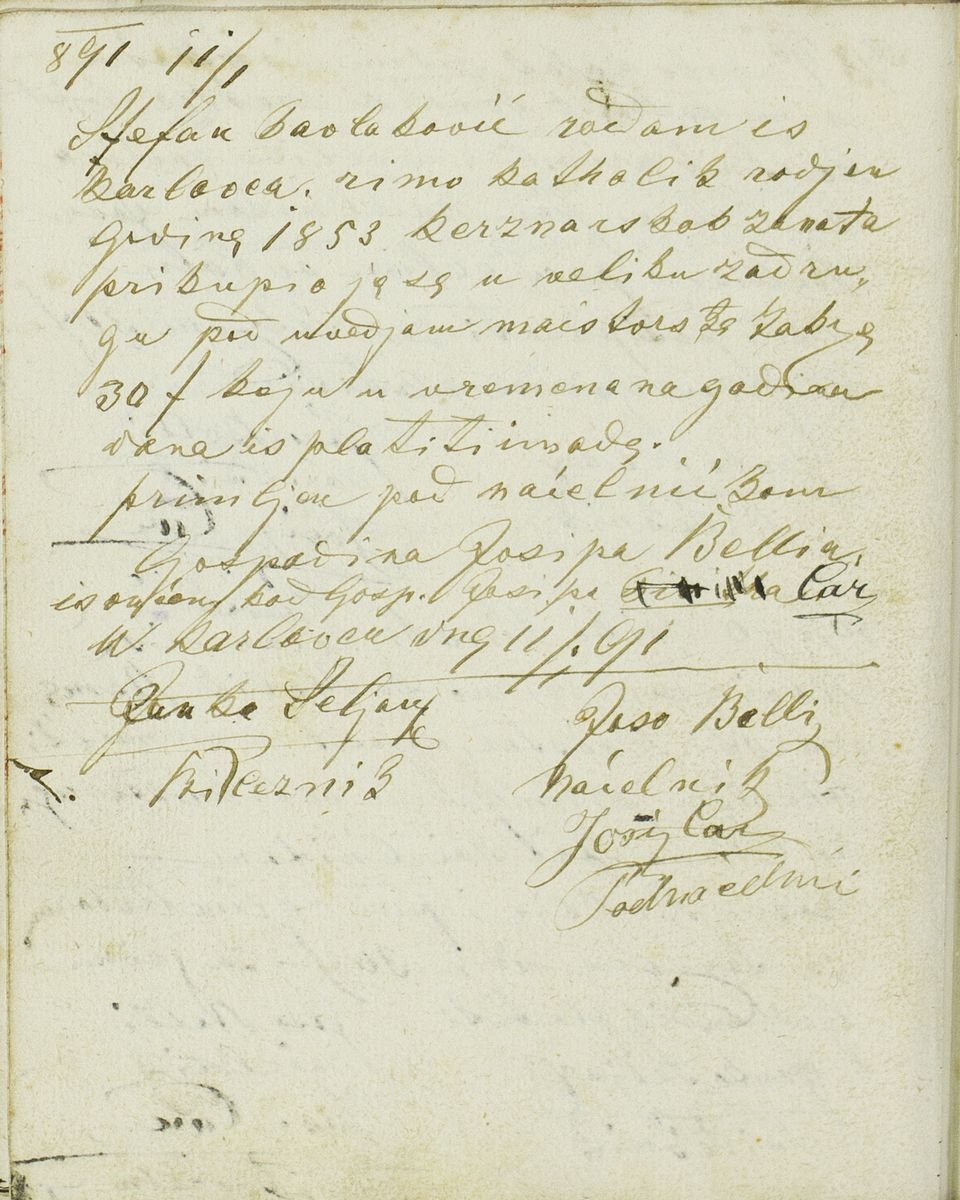 891 11/1
Stefan Pavlaković rođam is
Karlovca. rimo katholik rodjen
Godinę 1853 kerznarskob zanata
prikupio ję sę u veliku zadru„
gu pod uvedjam maistorstę
30 f koju u vremena na godinu
dana is platiti imadę.
primljen pod náčelnić kom
Gospodina Josipa Bellia.
isoučen kod Gosp. Josipa Car
U. Karlovcu dnę 11/1. 91
Janko Seljan Joso Belli
Bilieznik náčelnik
Josip Car
Podnačelnić